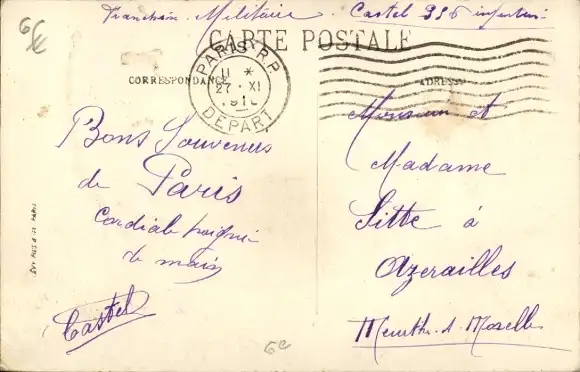 Franchise Militaire . Castel 336 infanterie
CARTE POSTALE
CORRESPONDANCE
ADRESSE
PARIS R.P.
11 *
27 · XI
DEPART
Bons Souvenirs
de Paris
Cordiale poigné
de main
Castel
Monsieur et
Madame
Sitte à
Azerailles
Meurthe & Moselle
6€